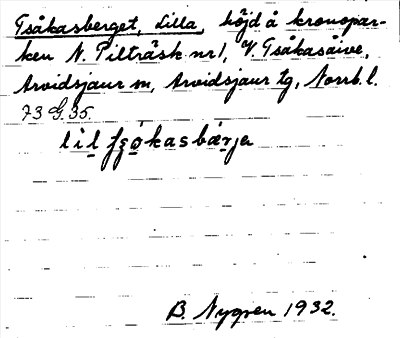 Tsåkasberget, Lilla, höjd å kronopar-
ken N. Pilträsk nr 1, V. Tsåkasåive,
Arvidsjaur sn, Arvidsjaur tg, Norrb. l.
73 G. 35.
B. Nygren 1932.